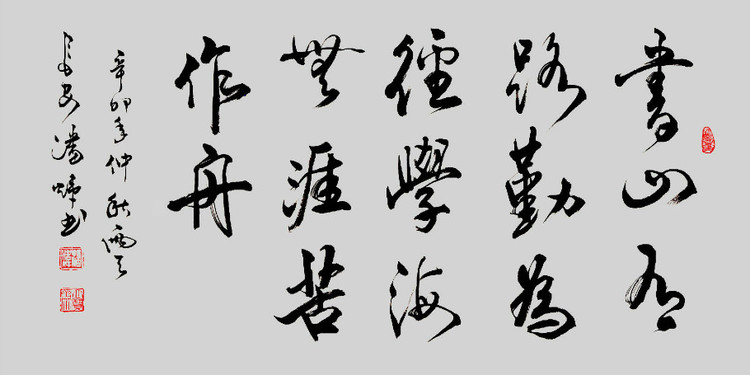 書山有
路勤為
徑學海
無涯苦
作舟
辛卯年仲秋
長安潘書